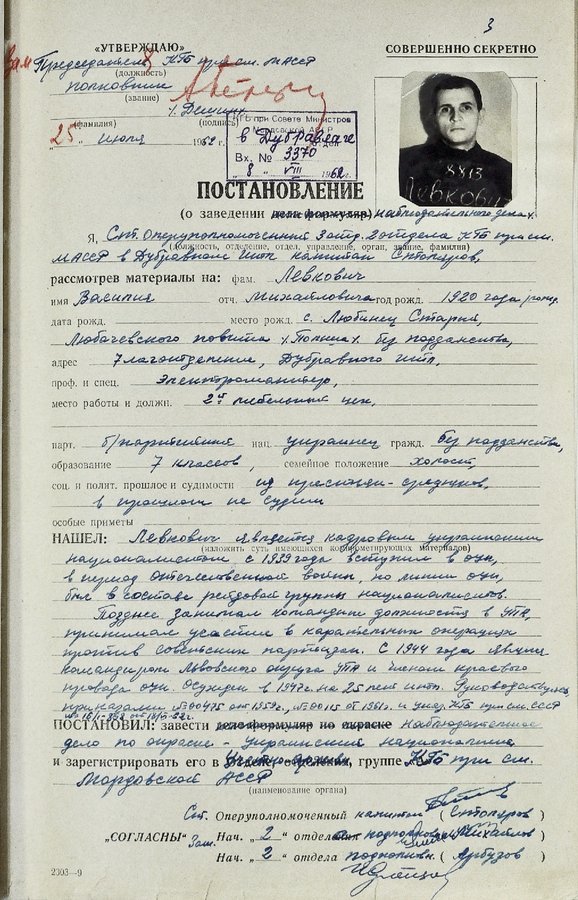 3
„УТВЕРЖДАЮ"
СОВЕРШЕННО СЕКРЕТНО
Зам Председателя КГБ при см. МАССР
(должность)
полковник
(звание)
(фамилия) (подпись)
„25" июля 1962 г.
КГБ при Совете Министров
Мордовской АССР
в Дубравлаге
Вх. № 3370
„8" VIII 1962
8813
Левкович
ПОСТАНОВЛЕНИЕ
(о заведении дела-формуляр) наблюдательного дела
Я, Ст. Оперуполномоченный 2 отдела КГБ при см.
(должность, отделение, отдел, управление, орган, звание, фамилия)
МАССР в Дубравном ИТЛ капитан Столяров,
рассмотрев материалы на: фам. Левкович
имя Василия отч. Михайловича год рожд. 1920 года рожд.
дата рожд. место рожд. с. Любинец Старый,
Любачевского повита /Польша/ без подданства,
адрес 7 лаготделение, Дубравного ИТЛ,
проф. и спец. Электромонтер,
место работы и должн. 2й мебельный цех,
парт. б/партийный нац. украинец гражд. без подданства,
образование 7 классов, семейное положение холост,
соц. и полит. прошлое и судимости из крестьян-середняков,
в прошлом не судим
особые приметы
НАШЕЛ: Левкович является кадровым украинским
(изложить суть имеющихся компрометирующих материалов)
националистом с 1939 года вступил в оун,
в период отечественной войны, по линии оун,
был в составе рейдовой группы националистов.
Позднее занимал командные должности в УПА,
принимал участие в карательных операциях
против советских партизан. С 1944 года являлся
командиром Львовского округа УПА и членом краевого
провода оун. Осужден в 1947г. на 25 лет итл. Руководствуясь
приказами №00475 от 1959г., №00115 от 1961г. и указ. КГБ при см. СССР
ПОСТАНОВИЛ: завести дело-формуляр по окраске наблюдательное
дело по окраске - украинский националист
и зарегистрировать его в группе КГБ при см.
Мордовской АССР
(наименование органа)
Ст. Оперуполномоченный капитан (Столяров)
„СОГЛАСНЫ" Зам. Нач. „2" отдела подполковник (Михайлов)
Нач. „2" отдела подполковн. (Арбузов)
2303—9